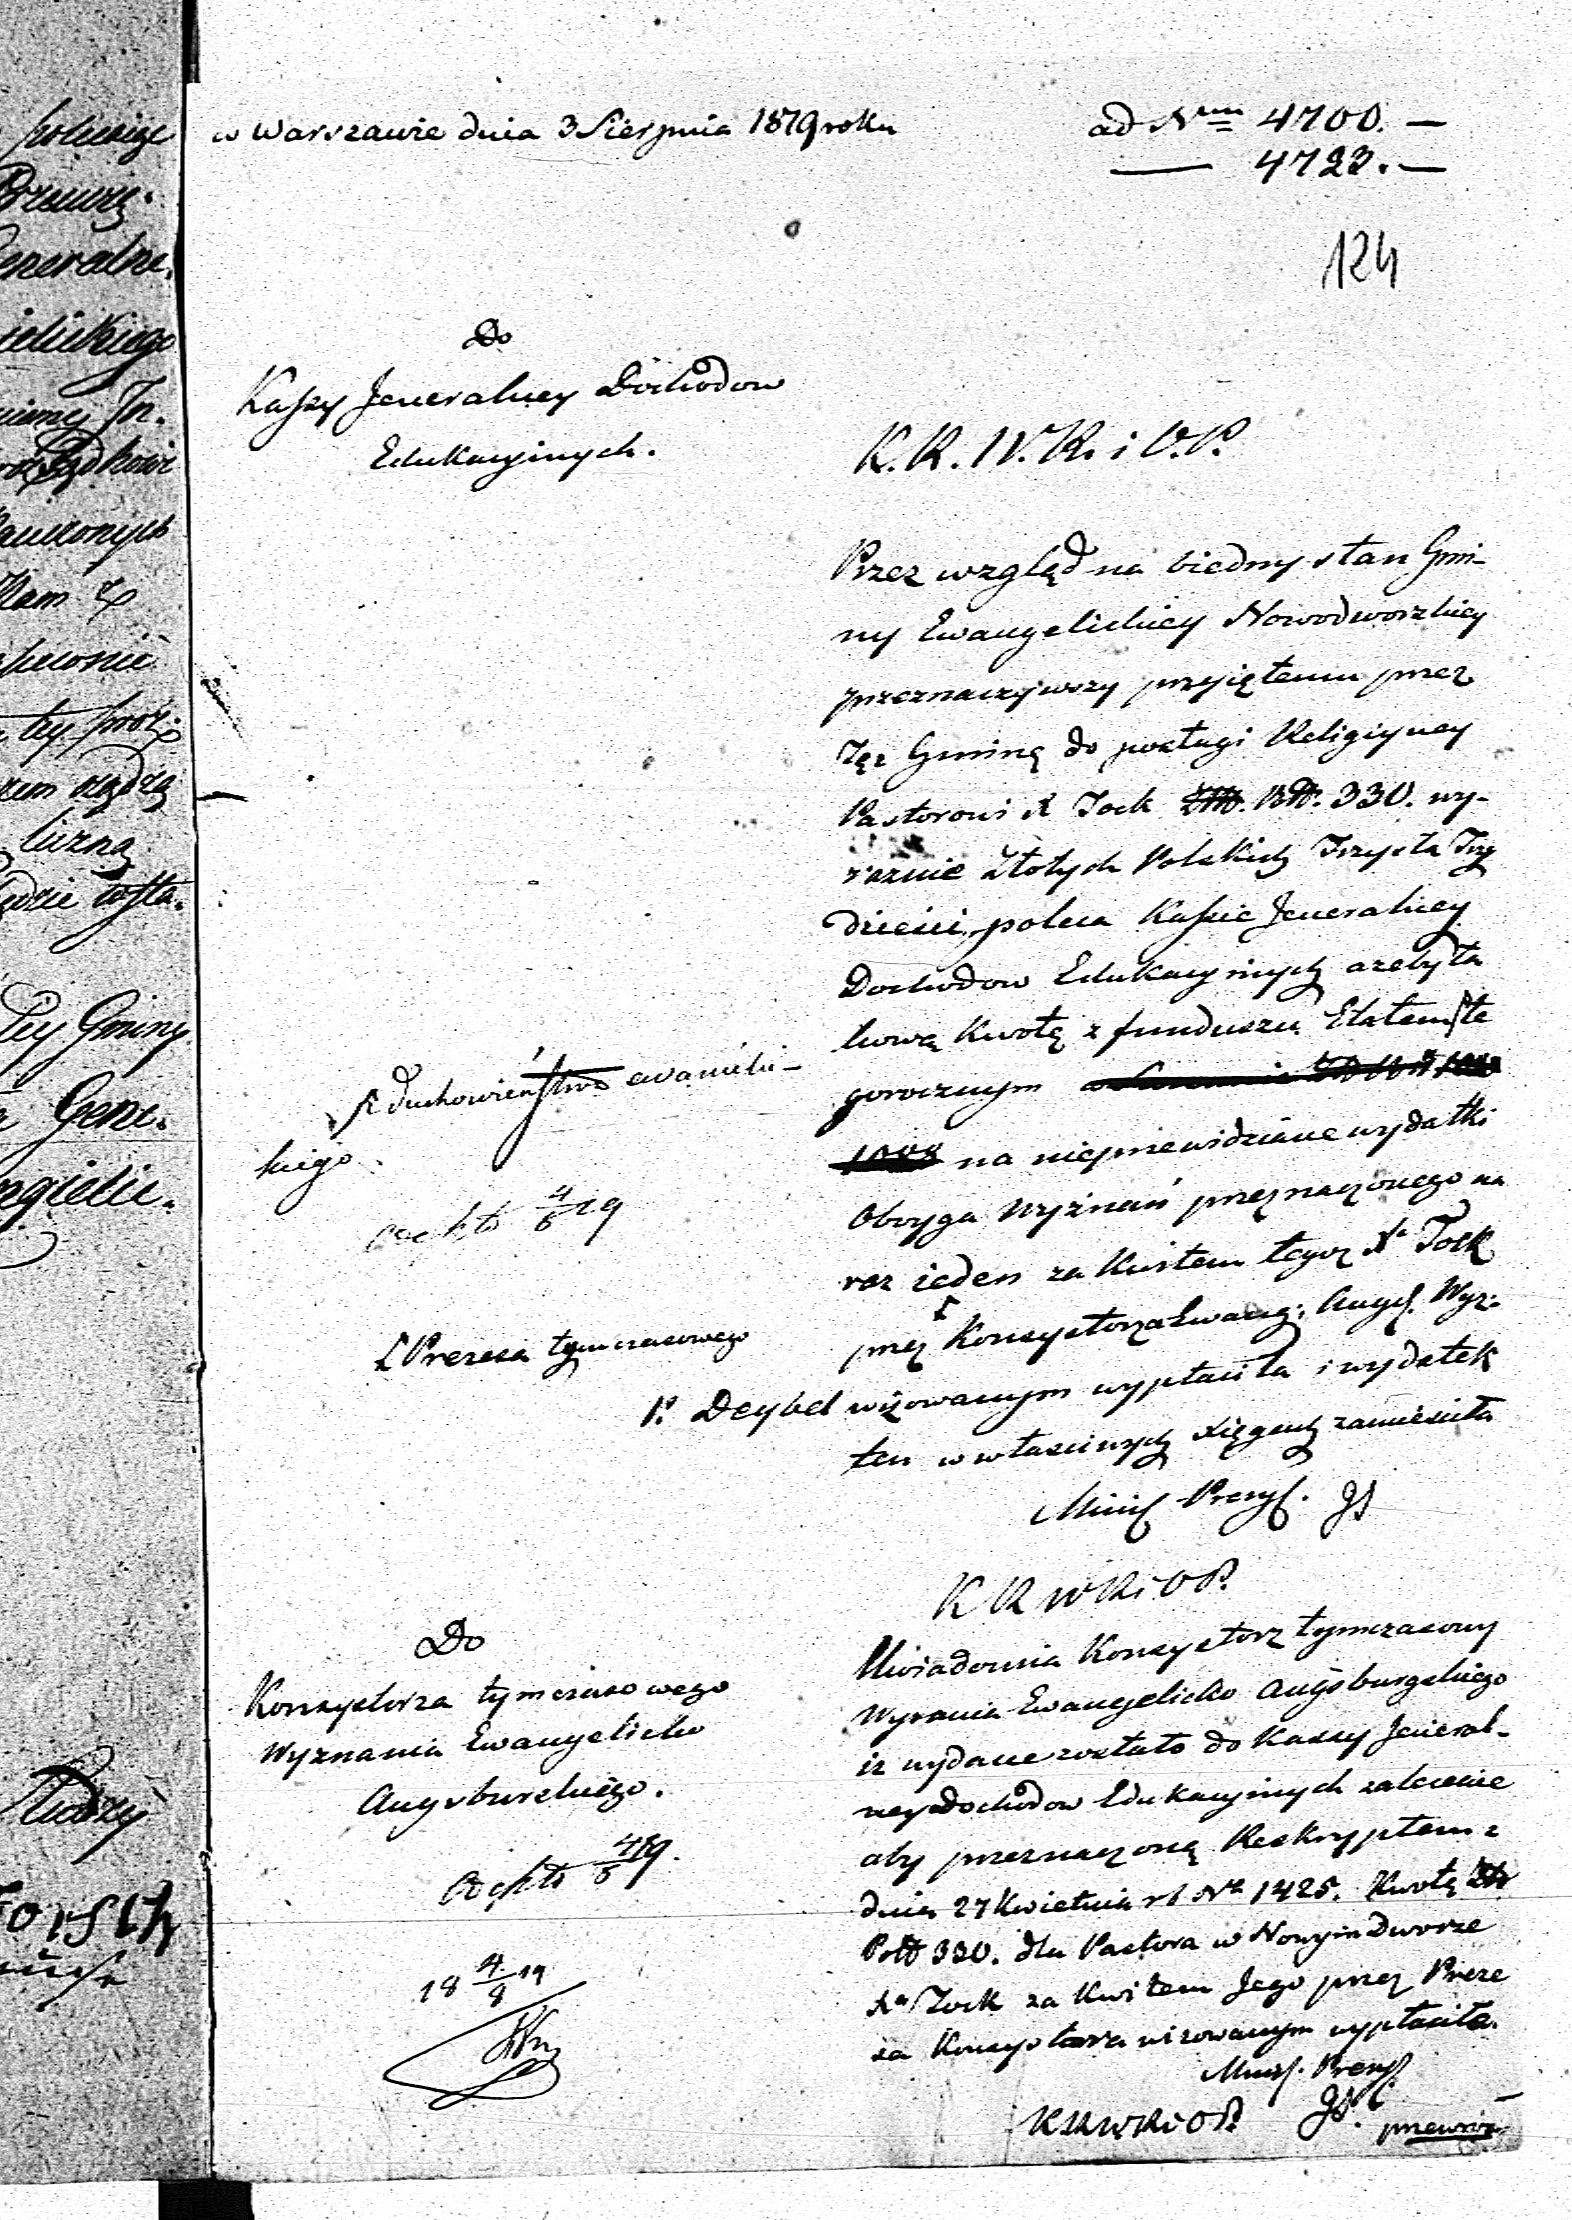 w Warszawie dnia 3 Sierpnia 1819 roku
ad Nrum 4700. —
— 4723. —
124
Do
Kassy Jeneralney Dochodow
Edukacyinych.
K. R. W. R. i O. P.
Przez wzgląd na biedny stan Gmi-
ny Ewangelickiey Nowodworskiey
przeznaczywszy przyiętemu przez
Tęż Gminę do posługi Religiyney
Pastorowi X Tock Złt. Pltt. 330. wy-
raznie Złotych Polskich Trzysta Trzy
dzieści, poleca Kassie Jeneralney
Dochodow Edukacyinych azeby ta
kową kwotę z funduszu Etatem te
gorocznym
na nieprzewidziane wydatki
Oboyga Wyznań przeznaczonego na
raz ieden za kwitem tegoż Xa Tock
przez Konsystorza Ewang: Augs. Wyz:
wizowanym wypłaciła i wydatek
ten w właściwych xięgach zamieściła
Minis Prezyd. JS
X duchowieństwa ewanieli-
kiego
4/8 19
X Prezesa tymczasowego
P. Deybel
K R W R i O P.
Do
Konsystorza tymczasowego
Wyznania Ewangelicko
Augsburskiego.
4/8 19.
18 4/8 19
Uwiadomia Konsystorz tymczasowy
Wyznania Ewangelicko Augsburgskiego
iz wydane zostało do Kassy Jeneral-
ney dochodow Edukacyinych zalecenie
aby przeznaczoną Reskryptem z
dnia 27 Kwietnia rb Nr 1425. Kwotę Złt
Poltt 330. dla Pastora w Nowym Dworze
Xa Tock za kwitem Jego przez Preze
sa Konsystorza wizowanym wypłaciła.
Minis. Prezyd.
KRWRiOP. JS. przewróć